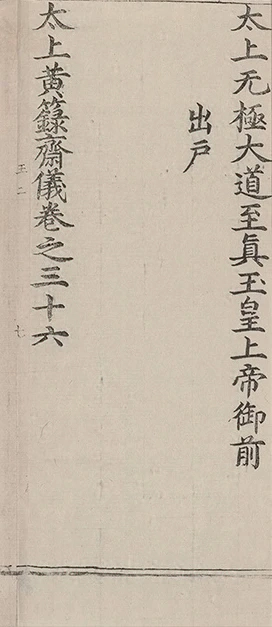 太上无極大道至真玉皇上帝御前
出户
太上黄籙齋儀卷之三十六